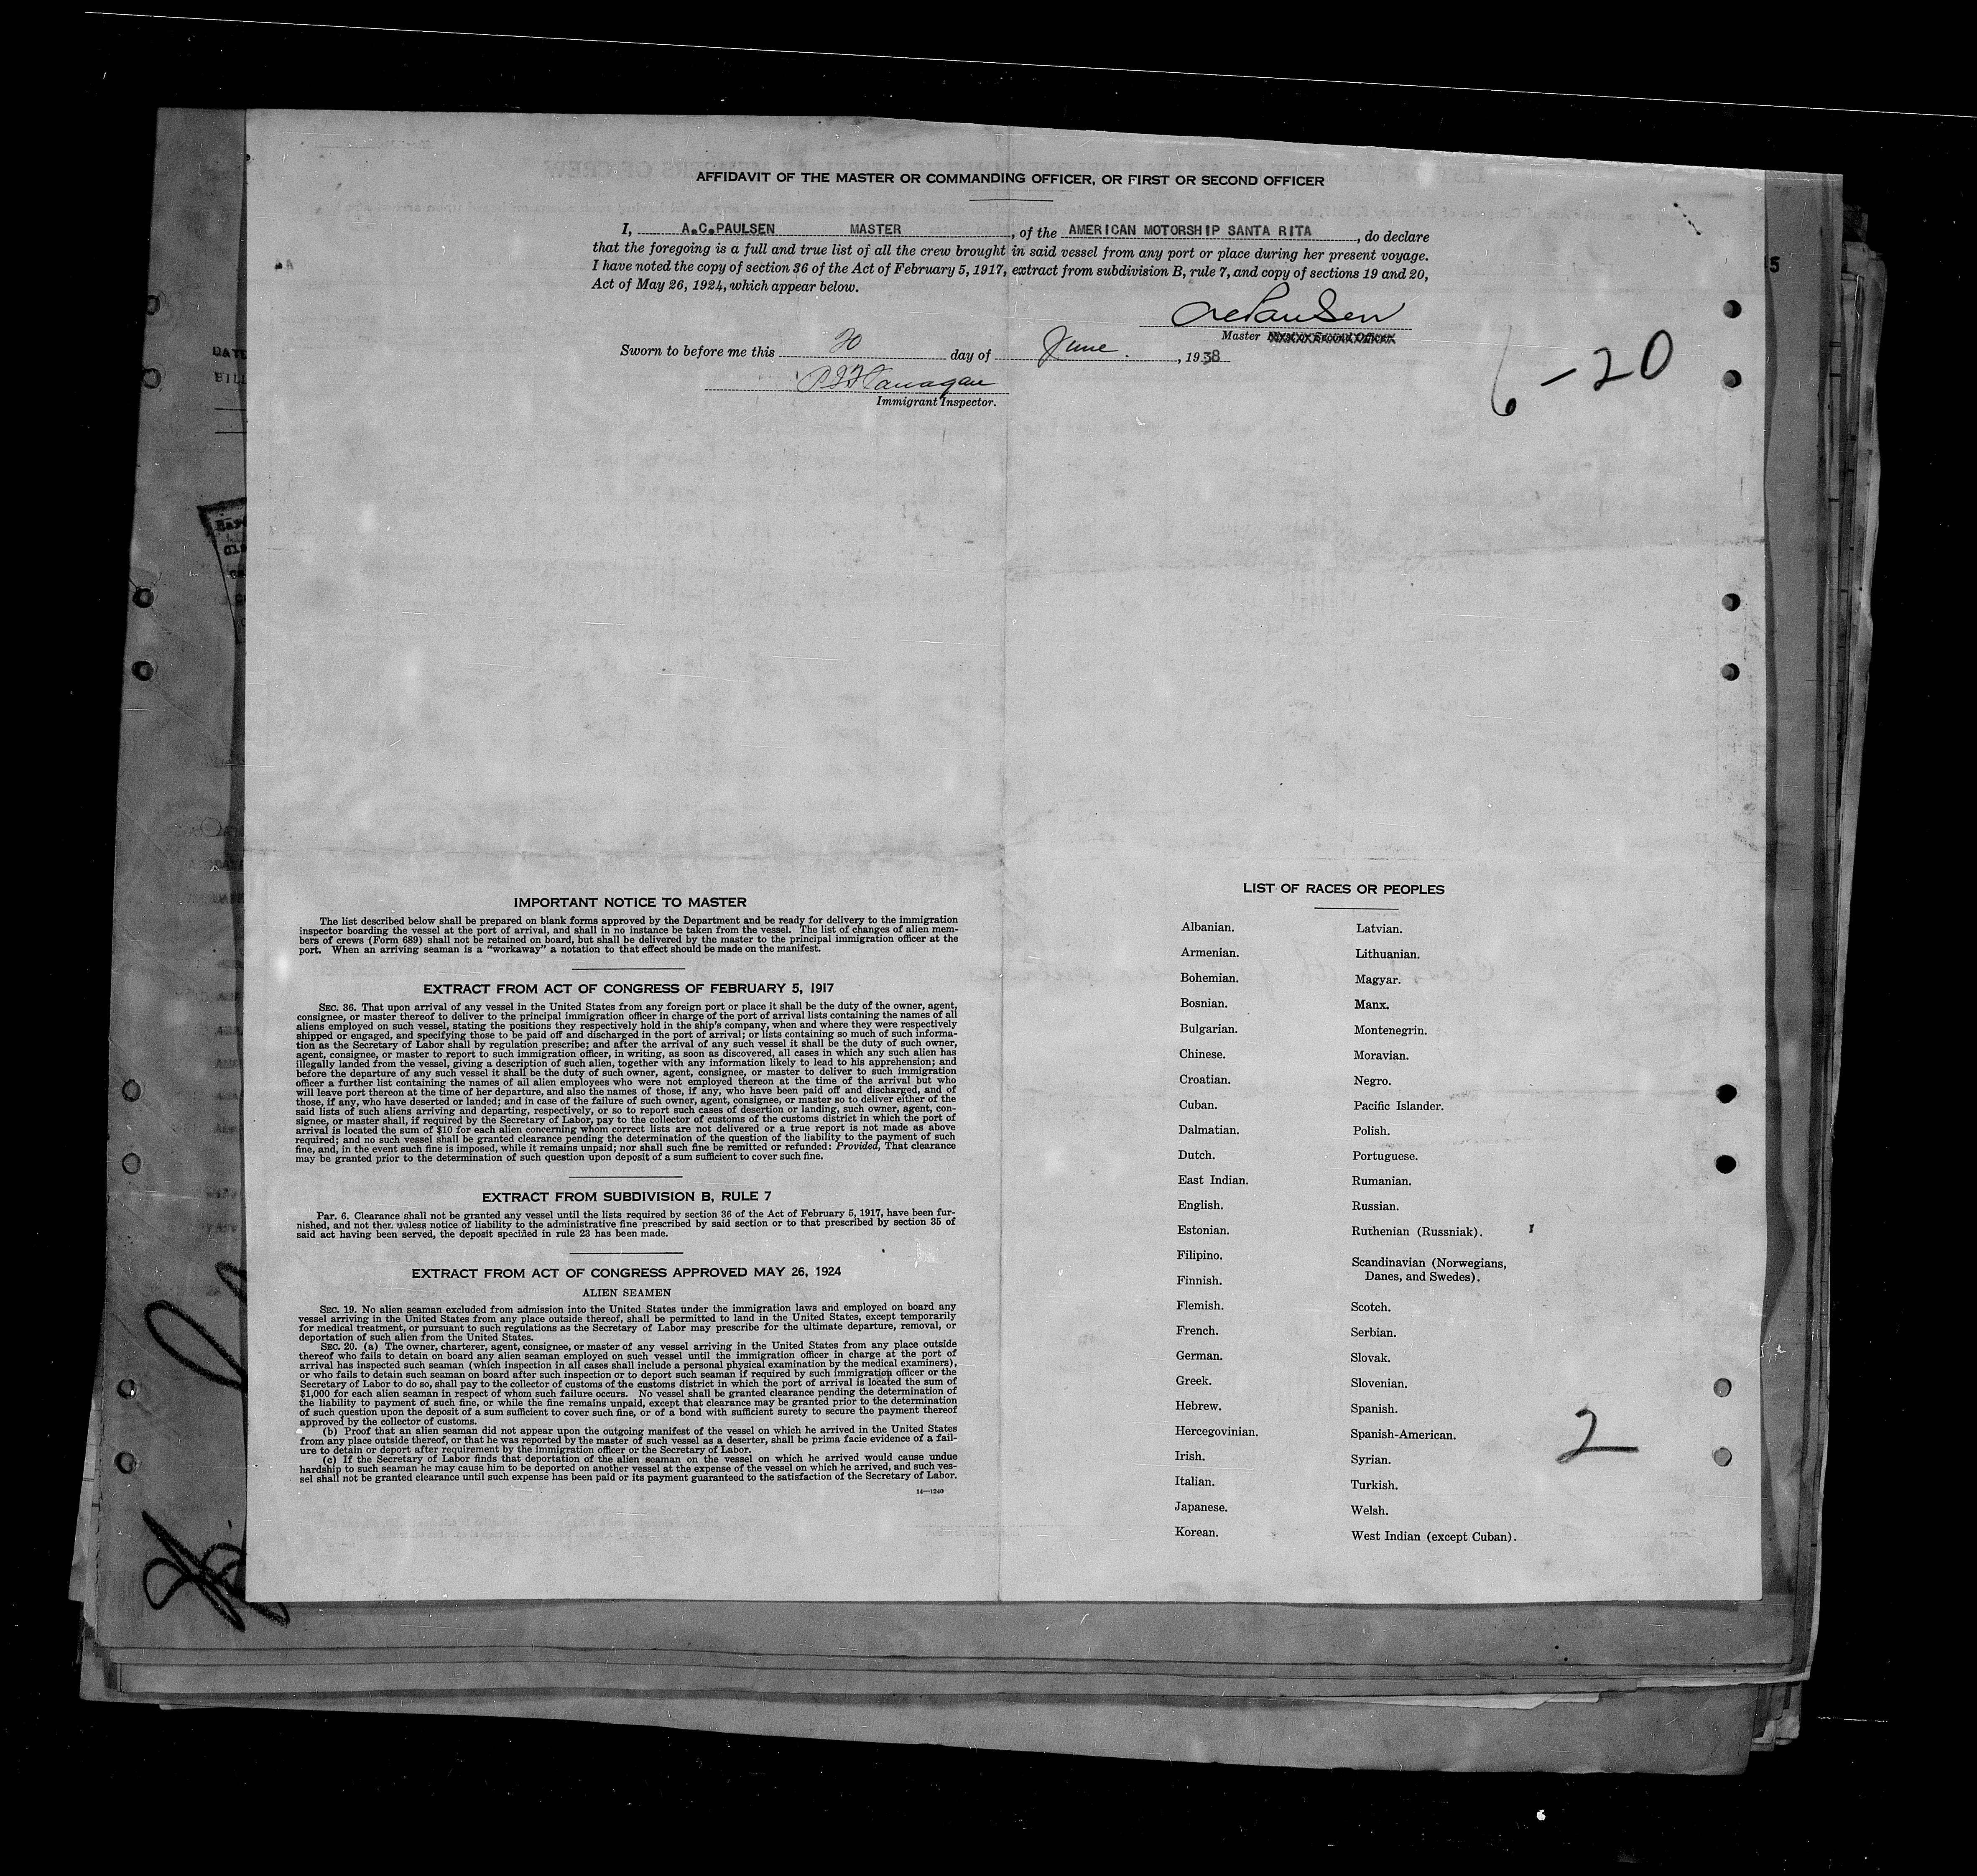 AFFIDAVIT OF THE MASTER OR COMMANDING OFFICER, OR FIRST OR SECOND OFFICER
I, A.C.PAULSEN MASTER, of the AMERICAN MOTORSHIP SANTA RITA, do declare
that the foregoing is a full and true list of all the crew brought in said vessel from any port or place during her present voyage.
I have noted the copy of section 36 of the Act of February 5, 1917, extract from subdivision B, rule 7, and copy of sections 19 and 20,
Act of May 26, 1924, which appear below.
ACPaulsen
Master
Sworn to before me this 20 day of June, 1938
6-20
Flanagan
Immigrant Inspector.
IMPORTANT NOTICE TO MASTER
The list described below shall be prepared on blank forms approved by the Department and be ready for delivery to the immigration
inspector boarding the vessel at the port of arrival, and shall in no instance be taken from the vessel. The list of changes of alien mem-
bers of crews (Form 689) shall not be retained on board, but shall be delivered by the master to the principal immigration officer at the
port. When an arriving seaman is a "workaway" a notation to that effect should be made on the manifest.
EXTRACT FROM ACT OF CONGRESS OF FEBRUARY 5, 1917
SEC. 36. That upon arrival of any vessel in the United States from any foreign port or place it shall be the duty of the owner, agent,
consignee, or master thereof to deliver to the principal immigration officer in charge of the port of arrival lists containing the names of all
aliens employed on such vessel, stating the positions they respectively hold in the ship's company, when and where they were respectively
shipped or engaged, and specifying those to be paid off and discharged in the port of arrival; or lists containing so much of such informa-
tion as the Secretary of Labor shall by regulation prescribe; and after the arrival of any such vessel it shall be the duty of such owner,
agent, consignee, or master to report to such immigration officer, in writing, as soon as discovered, all cases in which any such alien has
illegally landed from the vessel, giving a description of such alien, together with any information likely to lead to his apprehension; and
before the departure of any such vessel it shall be the duty of such owner, agent, consignee, or master to deliver to such immigration
officer a further list containing the names of all alien employees who were not employed thereon at the time of the arrival but who
will leave port thereon at the time of her departure, and also the names of those, if any, who have been paid off and discharged, and of
those, if any, who have deserted or landed; and in case of the failure of such owner, agent, consignee, or master so to deliver either of the
said lists of such aliens arriving and departing, respectively, or so to report such cases of desertion or landing, such owner, agent, con-
signee, or master shall, if required by the Secretary of Labor, pay to the collector of customs of the customs district in which the port of
arrival is located the sum of $10 for each alien concerning whom correct lists are not delivered or a true report is not made as above
required; and no such vessel shall be granted clearance pending the determination of the question of the liability to the payment of such
fine, and, in the event such fine is imposed, while it remains unpaid; nor shall such fine be remitted or refunded: Provided, That clearance
may be granted prior to the determination of such question upon deposit of a sum sufficient to cover such fine.
EXTRACT FROM SUBDIVISION B, RULE 7
Par. 6. Clearance shall not be granted any vessel until the lists required by section 36 of the Act of February 5, 1917, have been fur-
nished, and not then unless notice of liability to the administrative fine prescribed by said section or to that prescribed by section 35 of
said act having been served, the deposit specified in rule 23 has been made.
EXTRACT FROM ACT OF CONGRESS APPROVED MAY 26, 1924
ALIEN SEAMEN
SEC. 19. No alien seaman excluded from admission into the United States under the immigration laws and employed on board any
vessel arriving in the United States from any place outside thereof, shall be permitted to land in the United States, except temporarily
for medical treatment, or pursuant to such regulations as the Secretary of Labor may prescribe for the ultimate departure, removal, or
deportation of such alien from the United States.
SEC. 20. (a) The owner, charterer, agent, consignee, or master of any vessel arriving in the United States from any place outside
thereof who fails to detain on board any alien seaman employed on such vessel until the immigration officer in charge at the port of
arrival has inspected such seaman (which inspection in all cases shall include a personal physical examination by the medical examiners),
or who fails to detain such seaman on board after such inspection or to deport such seaman if required by such immigration officer or the
Secretary of Labor to do so, shall pay to the collector of customs of the customs district in which the port of arrival is located the sum of
$1,000 for each alien seaman in respect of whom such failure occurs. No vessel shall be granted clearance pending the determination of
the liability to payment of such fine, or while the fine remains unpaid, except that clearance may be granted prior to the determination
of such question upon the deposit of a sum sufficient to cover such fine, or of a bond with sufficient surety to secure the payment thereof
approved by the collector of customs.
(b) Proof that an alien seaman did not appear upon the outgoing manifest of the vessel on which he arrived in the United States
from any place outside thereof, or that he was reported by the master of such vessel as a deserter, shall be prima facie evidence of a fail-
ure to detain or deport after requirement by the immigration officer or the Secretary of Labor.
(c) If the Secretary of Labor finds that deportation of the alien seaman on the vessel on which he arrived would cause undue
hardship to such seaman he may cause him to be deported on another vessel at the expense of the vessel on which he arrived, and such ves-
sel shall not be granted clearance until such expense has been paid or its payment guaranteed to the satisfaction of the Secretary of Labor.
14—1240
LIST OF RACES OR PEOPLES
Albanian.
Armenian.
Bohemian.
Bosnian.
Bulgarian.
Chinese.
Croatian.
Cuban.
Dalmatian.
Dutch.
East Indian.
English.
Estonian.
Filipino.
Finnish.
Flemish.
French.
German.
Greek.
Hebrew.
Hercegovinian.
Irish.
Italian.
Japanese.
Korean.
Latvian.
Lithuanian.
Magyar.
Manx.
Montenegrin.
Moravian.
Negro.
Pacific Islander.
Polish.
Portuguese.
Rumanian.
Russian.
Ruthenian (Russniak).
Scandinavian (Norwegians,
Danes, and Swedes).
Scotch.
Serbian.
Slovak.
Slovenian.
Spanish.
Spanish-American.
Syrian.
Turkish.
Welsh.
West Indian (except Cuban).
2